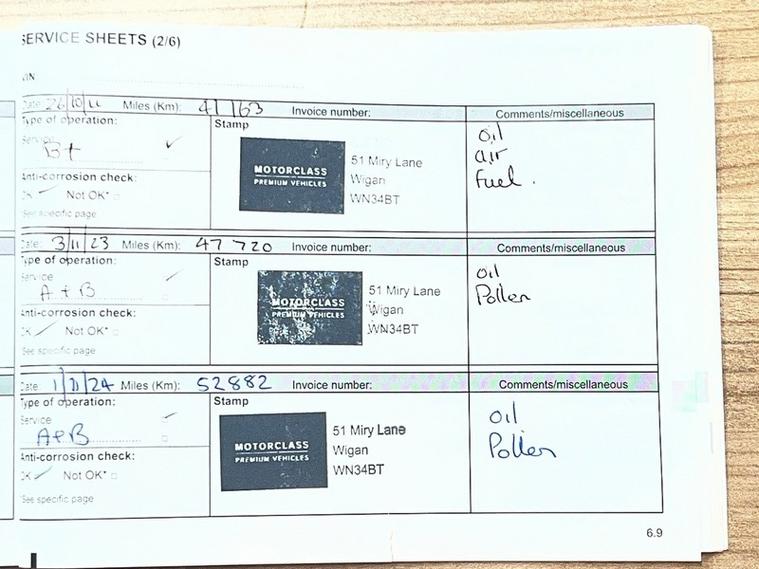 SERVICE SHEETS (2/6)
Date: 26/10/22 Miles (Km): 41163 Invoice number: Comments/miscellaneous
Type of operation:
Service
B+
Anti-corrosion check:
OK Not OK*
See specific page
Stamp
MOTORCLASS
PREMIUM VEHICLES
51 Miry Lane
Wigan
WN34BT
oil
air
Fuel.
Date: 3/11/23 Miles (Km): 47 720 Invoice number: Comments/miscellaneous
Type of operation:
Service
A + B
Anti-corrosion check:
OK Not OK*
See specific page
Stamp
MOTORCLASS
PREMIUM VEHICLES
51 Miry Lane
Wigan
WN34BT
oil
Pollen
Date: 1/11/24 Miles (Km): 52882 Invoice number: Comments/miscellaneous
Type of operation:
Service
A+B
Anti-corrosion check:
OK Not OK*
See specific page
Stamp
MOTORCLASS
PREMIUM VEHICLES
51 Miry Lane
Wigan
WN34BT
oil
Pollen
6.9